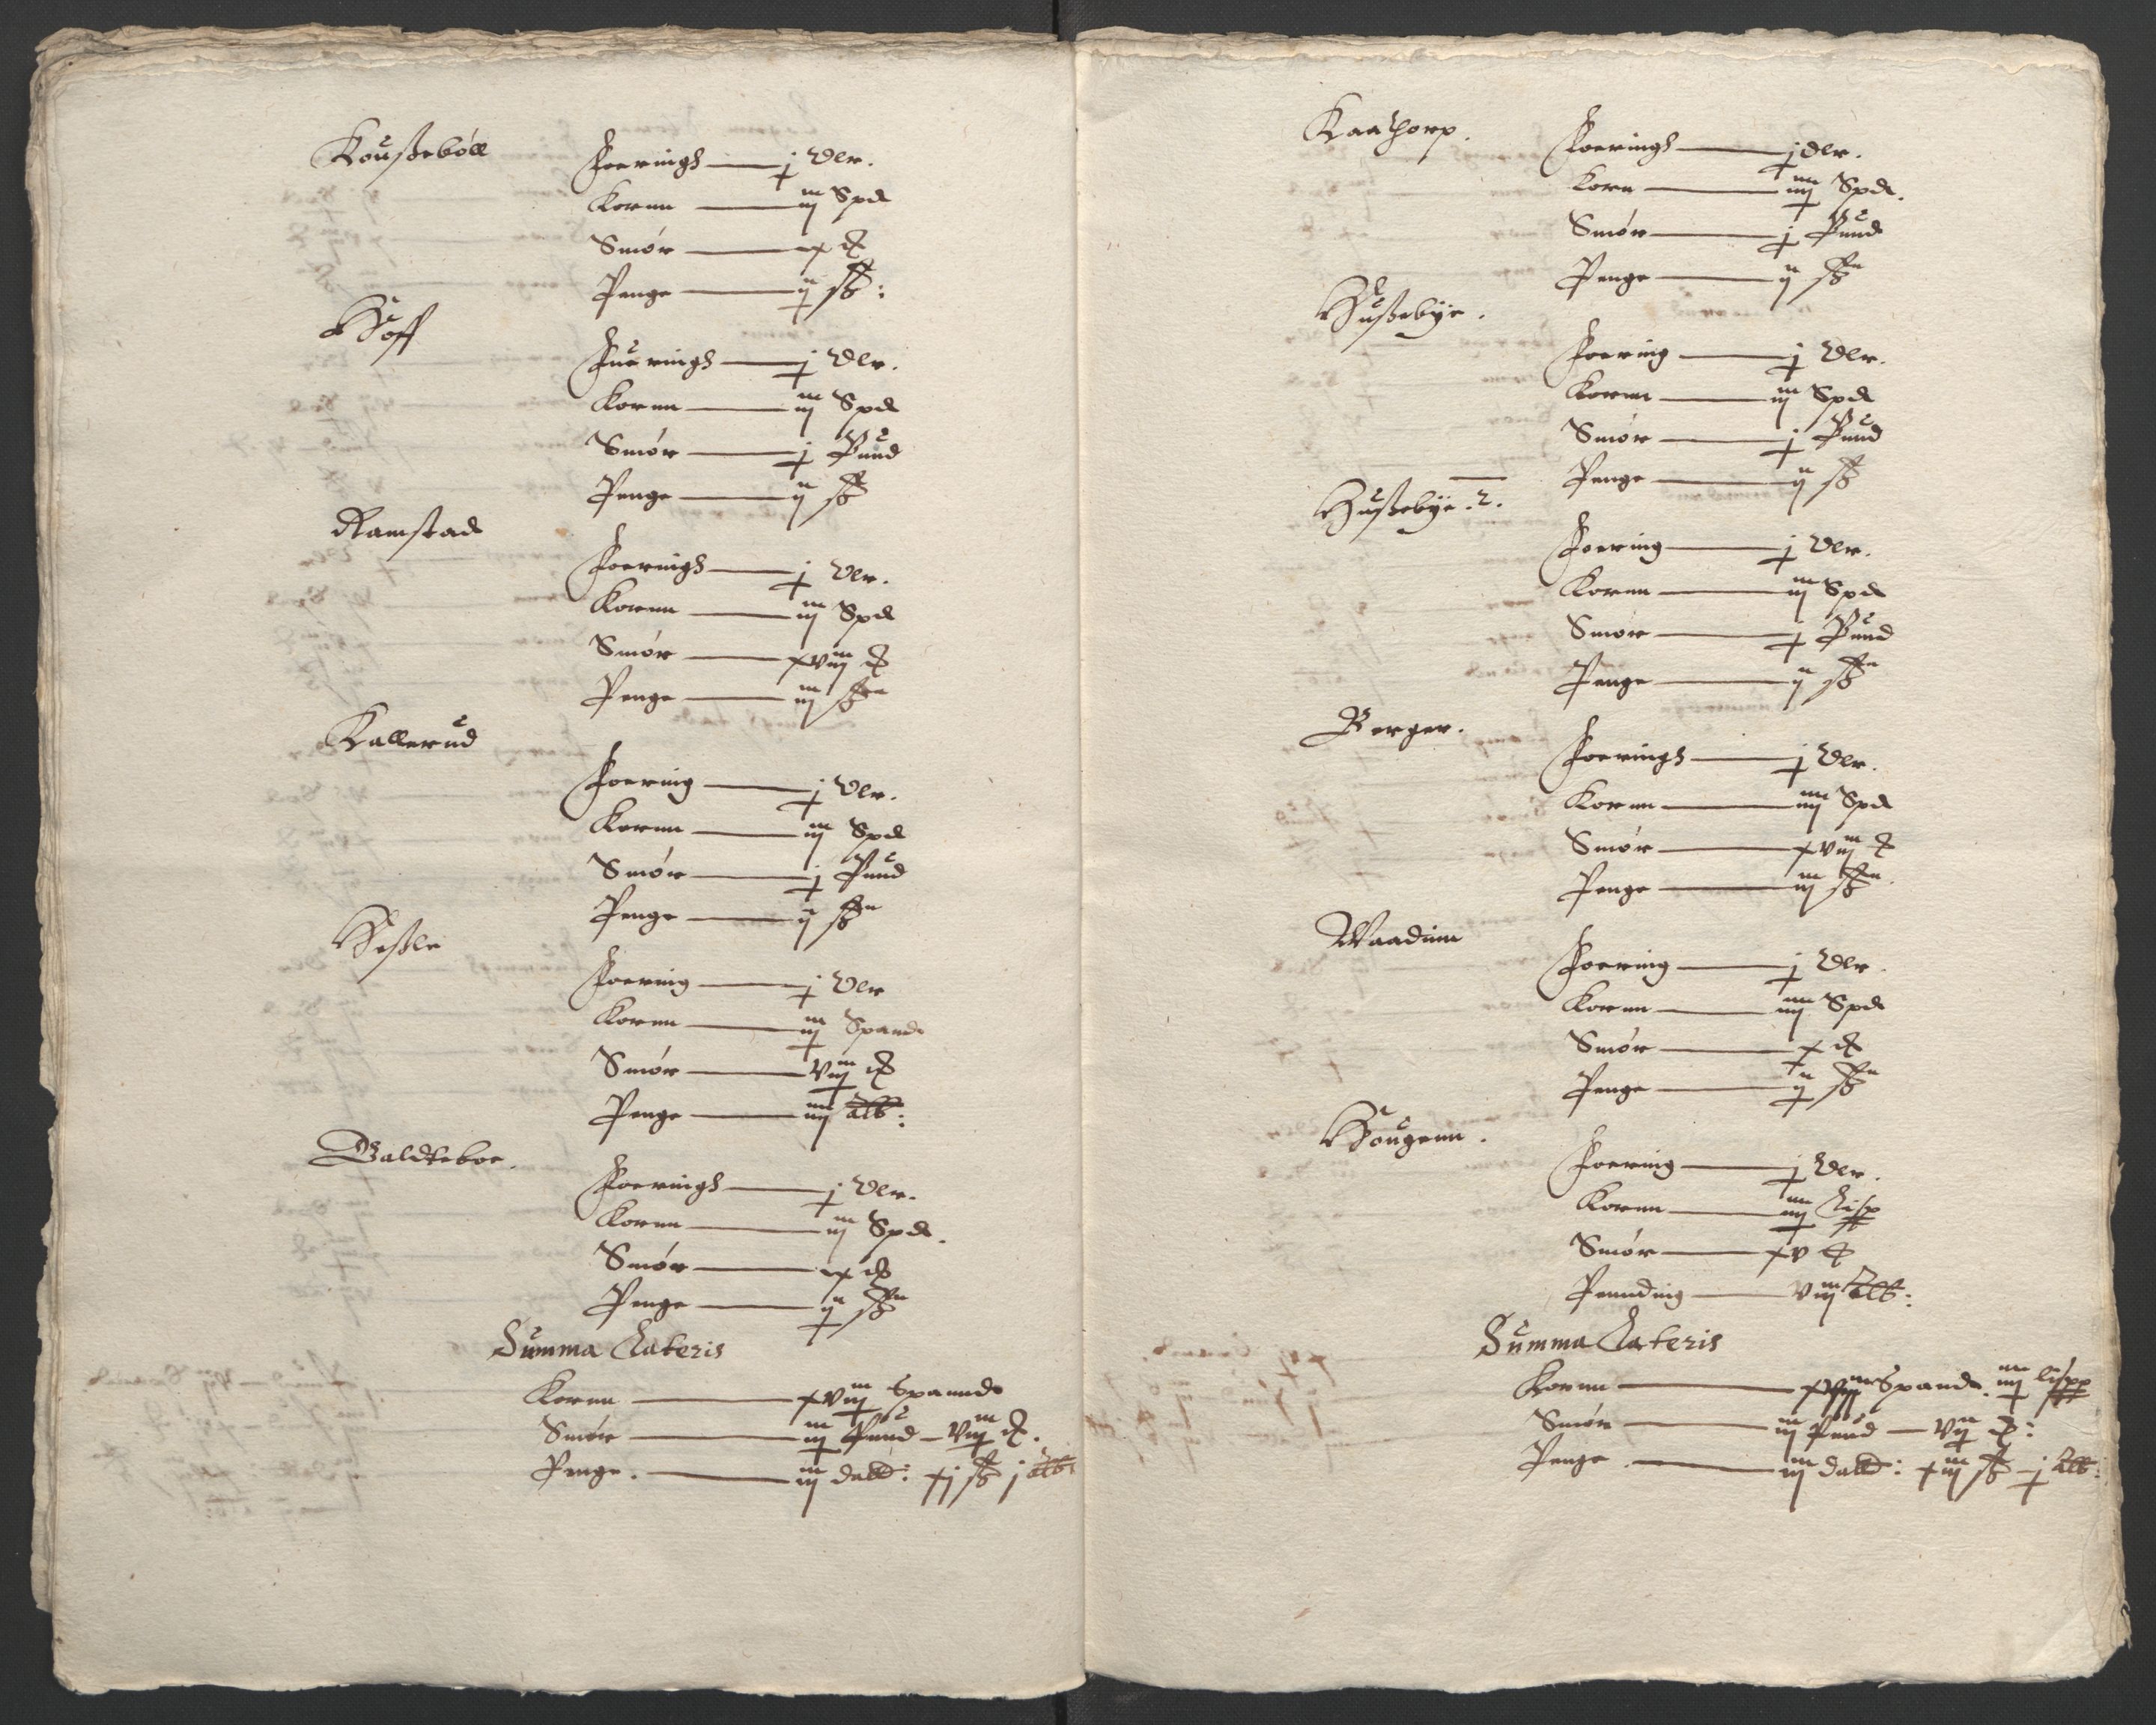 Koußeböll
Foerings — j Dlr.
Kornn — iij Spd
Smör — x ℔
Penge — ij ß:
Hoff
Fuerings — j Dlr.
Kornn — iij Spd
Smör — j Pund
Penge — ij ß
Ramstad
Foerings — j Dlr.
Kornn — iij Spd
Smör — xviij ℔
Penge — iij ß
Kallerud
Foering — j Dlr.
Kornn — iij Spd
Smör — j Pund
Penge — ij ß
Heßle
Foering — j Dlr
Kornn — iij Spand
Smör — viij ℔
Penge — iiij alb:
Galdteboe.
Foerings — j Dlr.
Kornn — iij Spd.
Smör — x ℔
Penge — ij ß
Summa Lateris
Kornn — xviij Spannd
Smör — iij Pund — viij ℔.
Penge. — iij dald: xj ß j alb:
Kaathorp.
Foerings — j dlr.
Korn — iiij Spd.
Smör — j Pund
Penge — ij ß
Hußebÿe.
Foering — j Dlr.
Kornn — iij Spd
Smör — j Pund
Penge — ij ß
Hußebÿe .2.
Foering — j Dlr.
Kornn — iij Spd
Smör — j Pund
Penge — ij ß
Berger.
Foerings — j Dlr.
Kornn — iiij Spd
Smör — xviij ℔
Penge — iij ß
Waadum
Foering — j Dlr.
Kornn — iiij Spd
Smör — x ℔
Penge — ij ß
Hougenn.
Foering — j Dlr.
Kornn — iiij Lisp
Smör — xv ℔
Pennding — viij alb:
Summa Lateris
Kornn — Spande. iiij lispp
Smör — iij Pund — vij ℔:
Penge. — iij dald: xiij ß j alb: